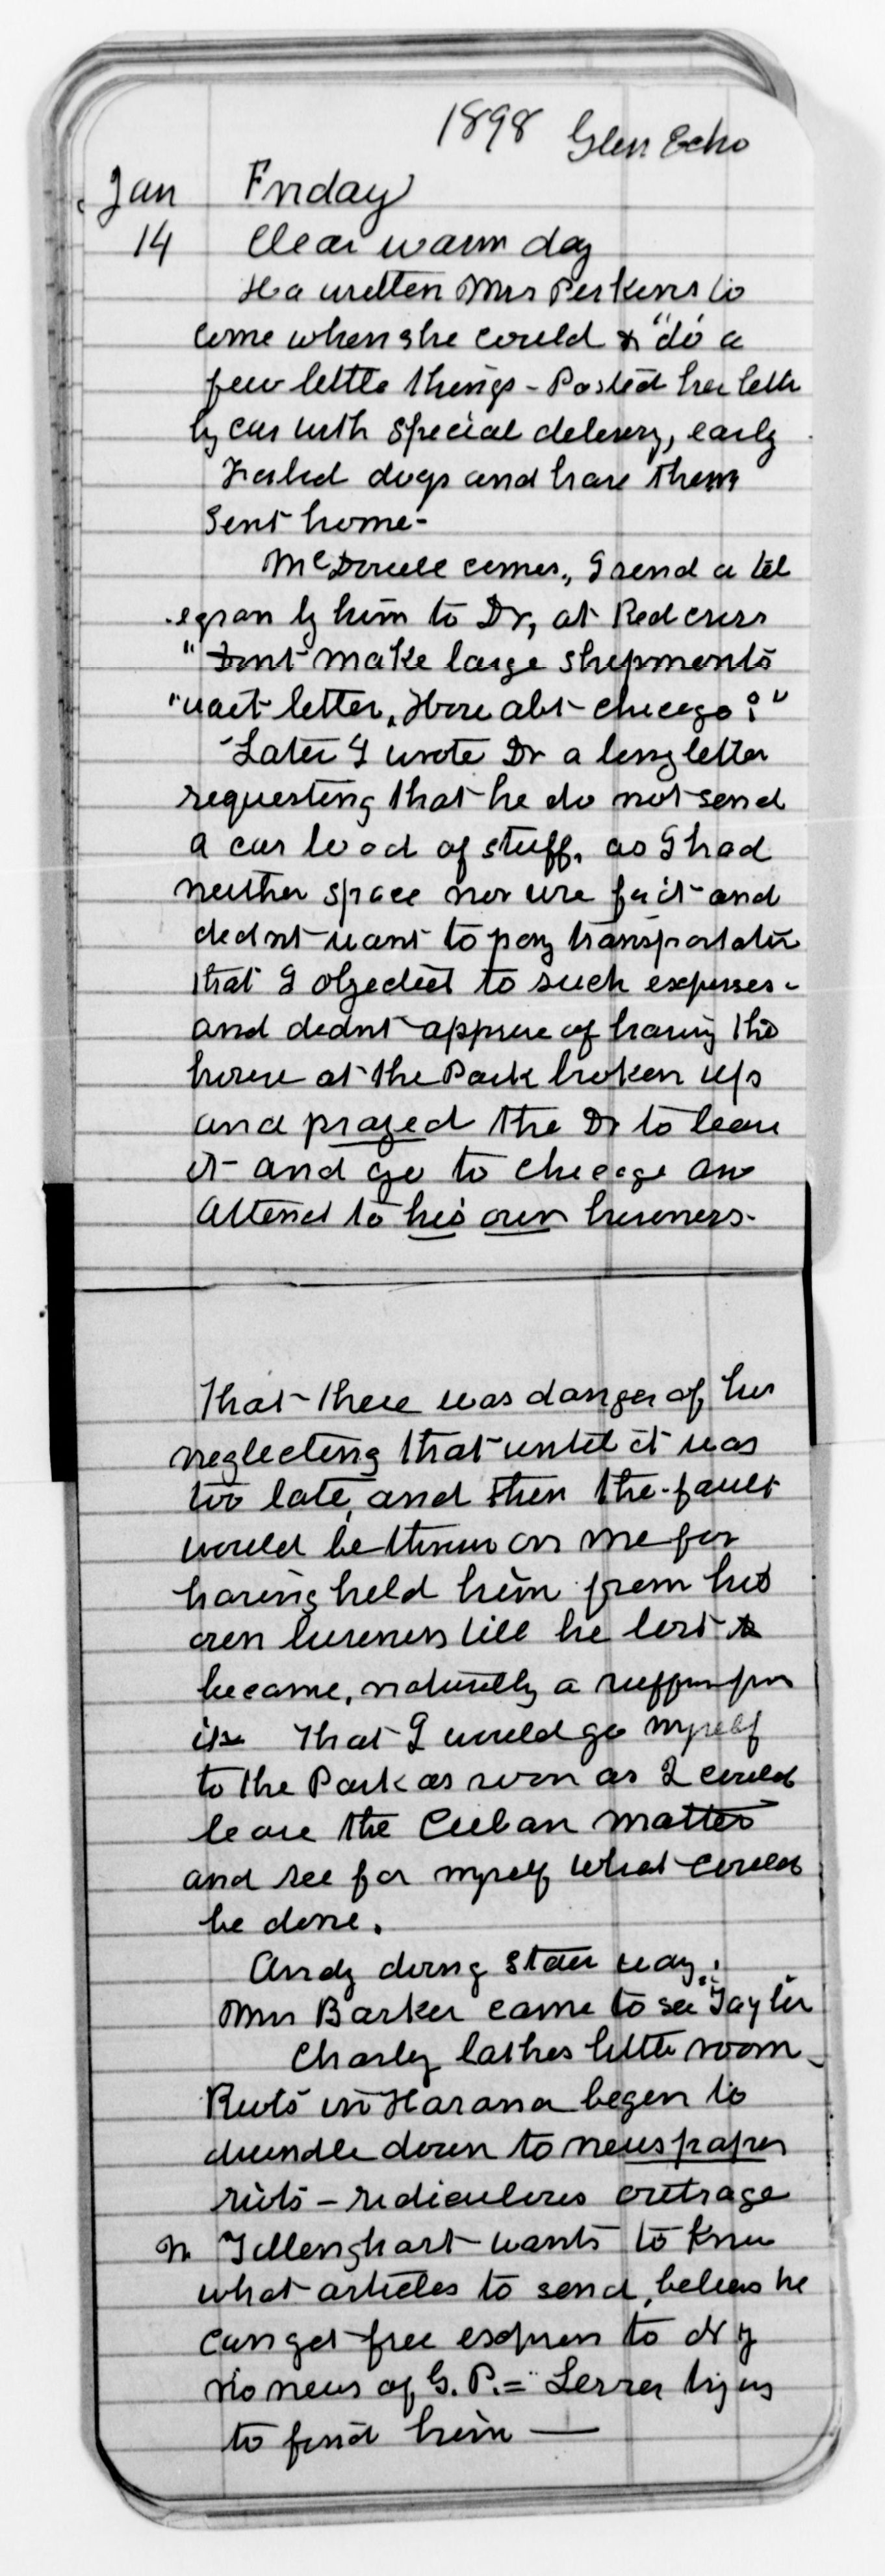 1898 Glen Echo
Jan Friday
14 Clear warm day
Ha written Mrs Perkins to
come when she could & "do a
few little things - Posted her lettr
by car with special delivery, early
dogs and have them
sent home -
McDowell comes, I send a tel
egram by him to Dr, at Red cross
"Dont make large shipments
"wait letter, How abt chicago?"
Later I wrote Dr a long letter
requesting that he do not send
a car load of stuff, as I had
neither space nor use for it and
didnt want to pay transportatin
that I objected to such expenses -
and didnt approve of having the
house at the Park broken up
and prayed the Dr to leave
it and go to Chicago an
attend to his own business -
That there was danger of his
neglecting that until it was
too late, and then the fault
would be thrown on me for
having held him from his
own business till he lost &
became, naturally a
That I would go myself
to the Park as soon as I could
leave the Cuban matter
and see for myself what could
be done.
Andy doing stair way.
Mrs Barker came to see "Taylor
Charley lathes little room -
Riots in Havana began to
dwindle down to newspaper
riots - ridiculous outrage
wants to know
what articles to send, believes he
can get free express to N Y
No news of G. P. = Lesser trying
to find him —